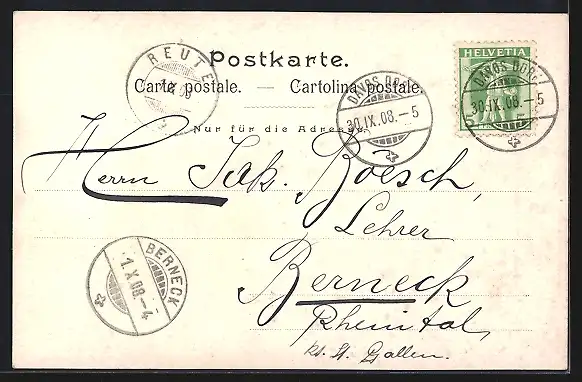 REUTE
Postkarte.
Carte postale. — Cartolina postale.
Nur für die Adresse
HELVETIA
DAVOS DORF
30.IX.08.–5
DAVOS DORF
30.IX.08.–5
Herrn Jak. Roesch,
Lehrer
Berneck
Rheintal
kt. St. Gallen.
BERNECK
1.X.08.–4